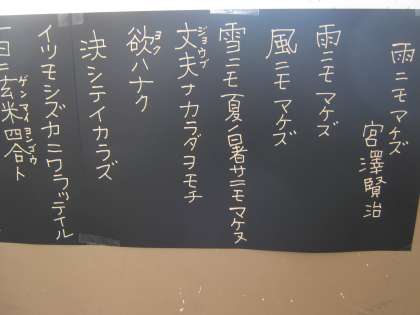 雨ニモマケズ
宮澤賢治
雨ニモマケズ
風ニモマケズ
雪ニモ夏ノ暑サニモマケヌ
丈夫ナカラダヲモチ
ジョウブ
欲ハナク
ヨク
決シテイカラズ
イツモシズカニワラッテイル
一日ニ玄米四合ト
ゲンマイヨンゴウ